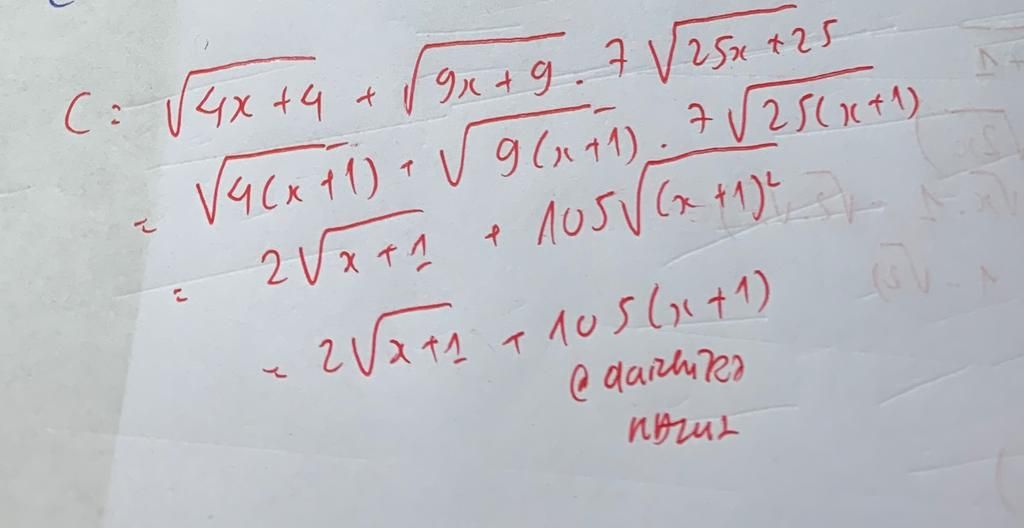 C = √(4x+4) + √(9x+9) . 7√(25x+25)
= √(4(x+1)) + √(9(x+1)) . 7√(25(x+1))
= 2√(x+1) + 105√((x+1)²)
= 2√(x+1) + 105(x+1)